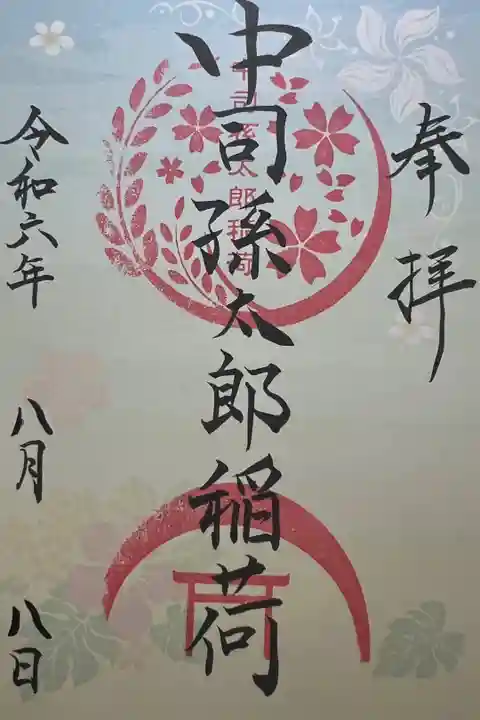 奉拝
中司孫太郎稲荷
中司孫太郎稲荷
令和六年
八月
八日